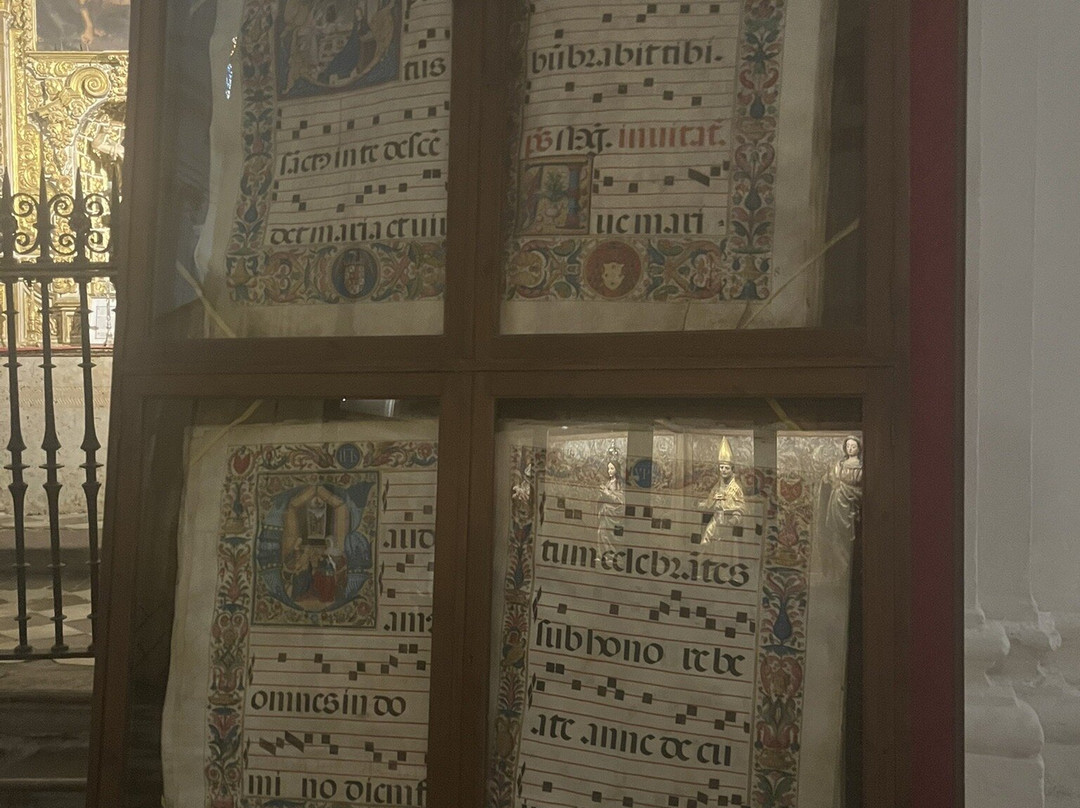 tus
sāctꝰ in te descē
det maria et uir
būbrabit tibi.
inuitat̄.
Aue mari
Gaud
am
omnes in do
mi no diem f
tum celebrātes
sub hono re be
ate anne de cu